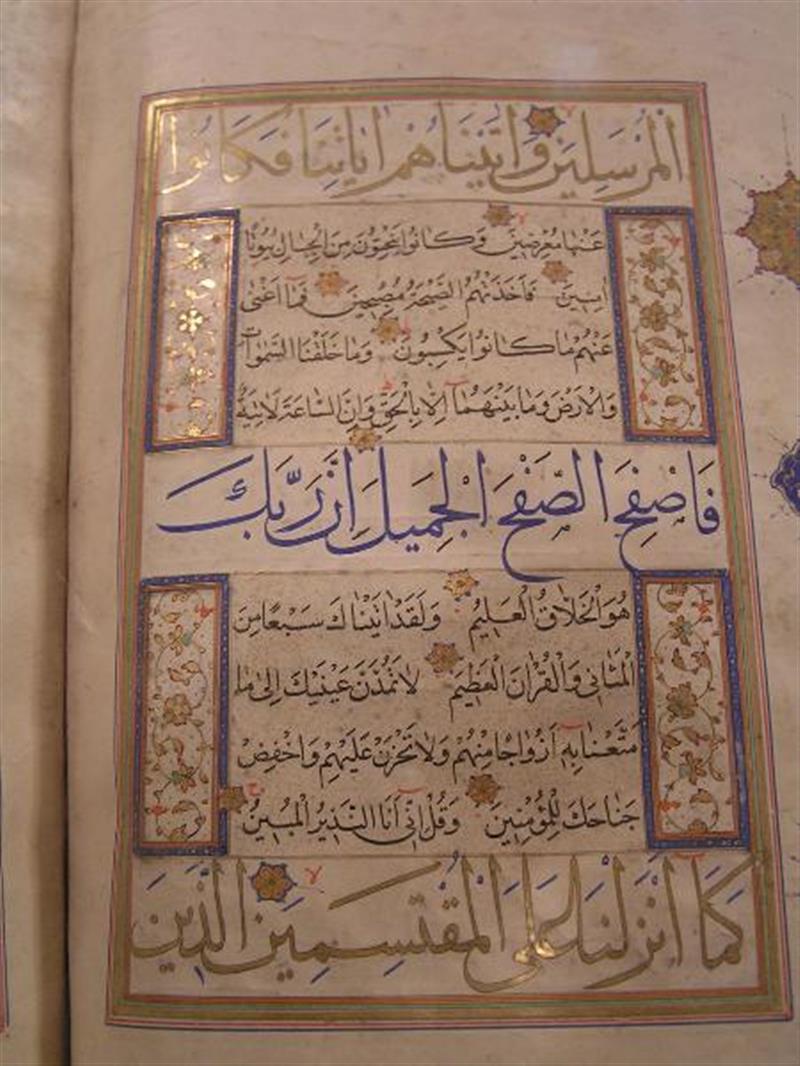 المرسلين واتيناهم اياتنا فكانوا
عنها معرضين وكانوا ينحتون من الجبال بيوتا
امنين فاخذتهم الصيحة مصبحين فما اغنى
عنهم ما كانوا يكسبون وما خلقنا السموات
والارض وما بينهما الا بالحق وان الساعة لاتية
فاصفح الصفح الجميل ان ربك
هو الخلاق العليم ولقد اتيناك سبعا من
المثاني والقران العظيم لا تمدن عينيك الى ما
متعنا به ازواجا منهم ولا تحزن عليهم واخفض
جناحك للمؤمنين وقل اني انا النذير المبين
كما انزلنا على المقتسمين الذين